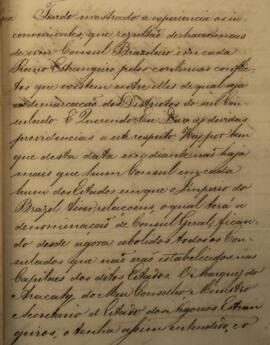 Tendo mostrado a experiencia os in
convenientes, que rezultão de haver mais
de um Consul Brazileiro em cada
Reino Estrangeiro pelos continuos conflic
tos que existem entre elles de qual seja
a demarcação dos Districtos do seu Con
sulado E Querendo Eu Dar as devidas
providencias a este respeito Hey por bem
que desta data em diante não haja
mais que hum Consul em cada
hum dos Estados em que o Imperio do
Brazil tiver relacoens, o qual terá a
denominação de Consul Geral, fican
do desde agora abolidos todos os Con
sulados que não são estabelecidos nas
Capitaes dos ditos Estados. O Marquez do
Aracaty, do Meu Conselho, Ministro
e Secretario de Estado dos Negocios Estran
geiros, o tenha assim entendido, e o